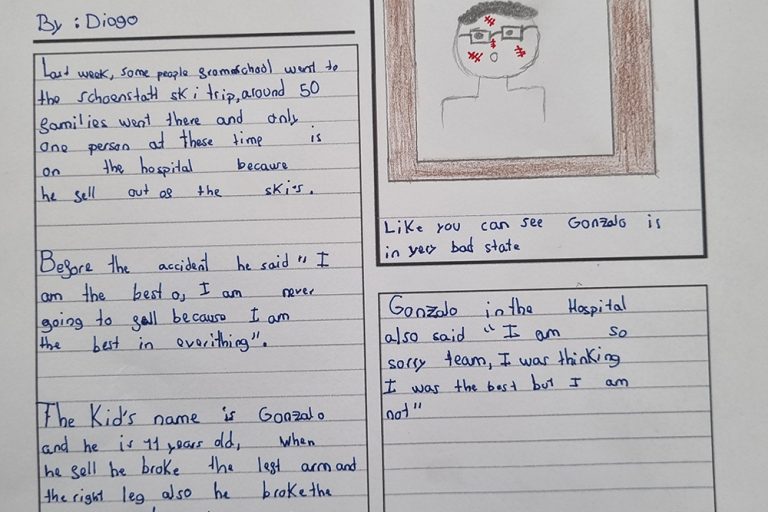 By : Diogo
Last week, some people from school went to
the schoenstatt ski trip, around 50
families went there and only
one person at these time is
on the hospital because
he fell out of the skis.
Before the accident he said " I
am the best o, I am never
going to fall because I am
the best in everithing".
The Kid's name is Gonzalo
and he is 11 years old, when
he fell he broke the left arm and
the right leg also he broke the
Like you can see Gonzalo is
in very bad state
Gonzalo in the Hospital
also said " I am so
sorry team, I was thinking
I was the best but I am
not"